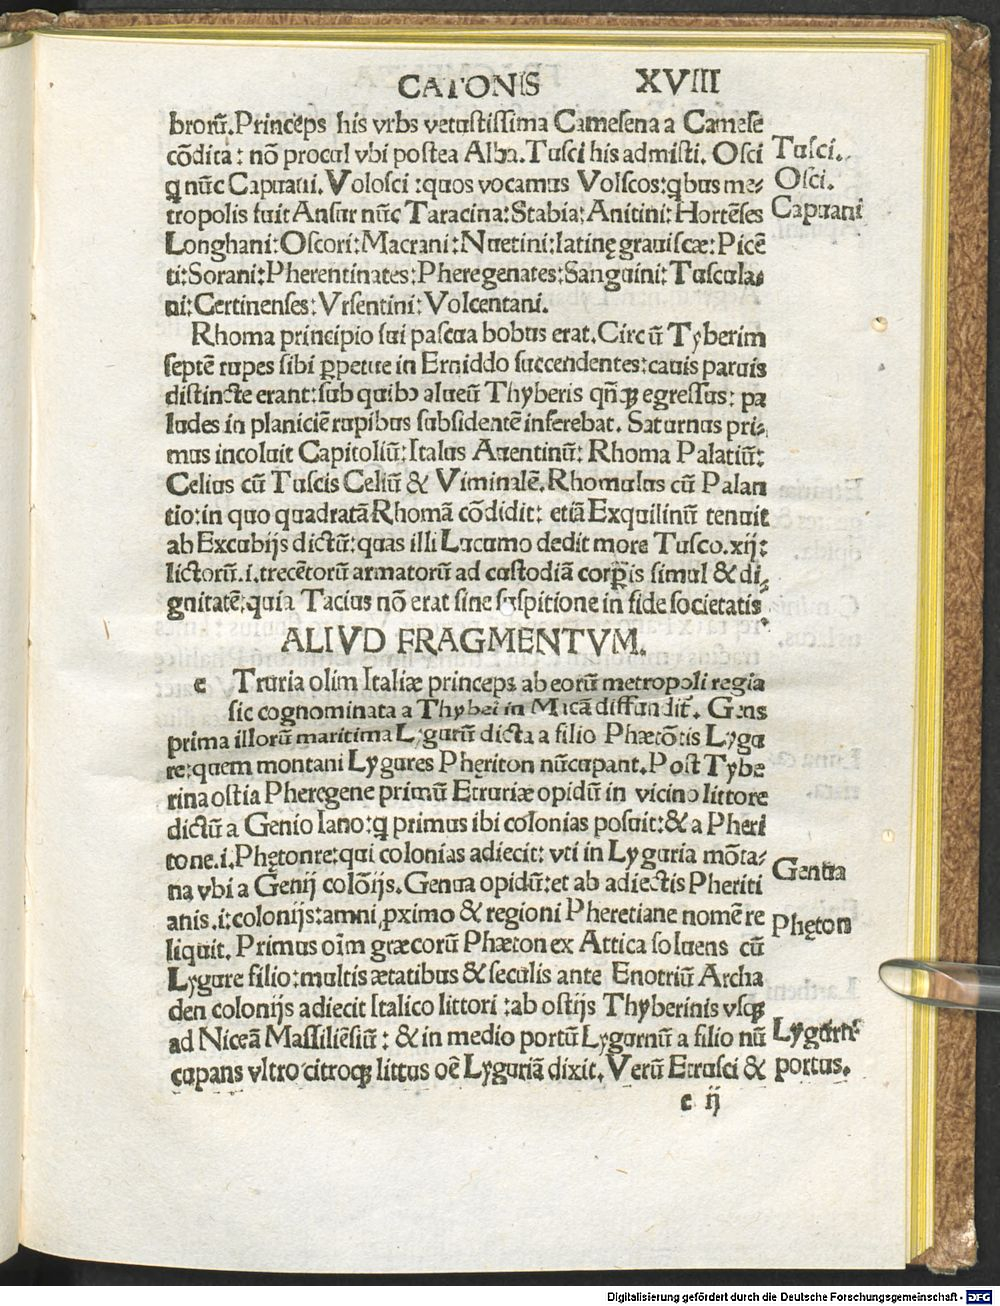 CATONIS XVIII
brorū.Princeps his vrbs vetustissima Camesena a Camese
cōdita: nō procul vbi postea Alba.Tusci his admisti. Osci
q nūc Capuani.Volosci :quos vocamus Volscos:qbus me-
tropolis fuit Ansur nūc Taracina:Stabia:Anitini:Hortēses
Longhani:Oscori:Macrani:Nuetini:latinę grauiscæ:Picē
ti:Sorani:Pherentinates:Pheregenates:Sanguini:Tuscula-
ni:Certinenses:Vrsentini:Volcentani.
Tusci.
Osci.
Capuani
Rhoma principio sui pascua bobus erat.Circū Tyberim
septē rupes sibi ꝑpetue in Erniddo succendentes:cauis paruis
distincte erant:sub quibꝰ alueū Thyberis qñꝙ egressus: pa
ludes in planiciē rupibus subsidentē inferebat. Saturnus pri-
mus incoluit Capitoliū:Italus Auentinū:Rhoma Palatiū:
Celius cū Tuscis Celiū & Viminalē.Rhomulus cū Palan
tio:in quo quadratā Rhomā cōdidit: etiā Exquilinū tenuit
ab Excubijs dictū:quas illi Lucumo dedit more Tusco.xij:
lictorū.i.trecētorū armatorū ad custodiā corꝑis simul & di-
gnitatē:quia Tacius nō erat sine suspitione in fide societatis
ALIVD FRAGMENTVM.
e Truria olim Italiæ princeps ab eorū metropoli regia
sic cognominata a Thybei in Micā diffundit̄. Gens
prima illorū maritima Lygurū dicta a filio Phætōtis Lygu
re:quem montani Lygures Phęriton nūcupant.Post Tybe
rina ostia Pheregene primū Etruriæ opidū in vicino littore
dictū a Genio Iano:q primus ibi colonias posuit:& a Pheri
tone.i.Phętonte:qui colonias adiecit: vti in Lyguria mōta-
na vbi a Genij colōijs.Genua opidū:et ab adiectis Pheriti
anis.i:colonijs:amni ꝓximo & regioni Pheretiane nomē re
liquit. Primus oīm græcorū Phæton ex Attica soluens cū
Lygure filio:multis ætatibus & seculis ante Enotriū Archa
den colonijs adiecit Italico littori :ab ostijs Thyberinis vsꝙ
ad Niceā Massiliēsiū : & in medio portū Lygurnū a filio nū
cupans vltro citroꝙ littus oē Lyguriā dixit. Verū Etrusci &
Genua
Phęton
Lygurn⁹
portus.
c ij
Digitalisierung gefördert durch die Deutsche Forschungsgemeinschaft - DFG